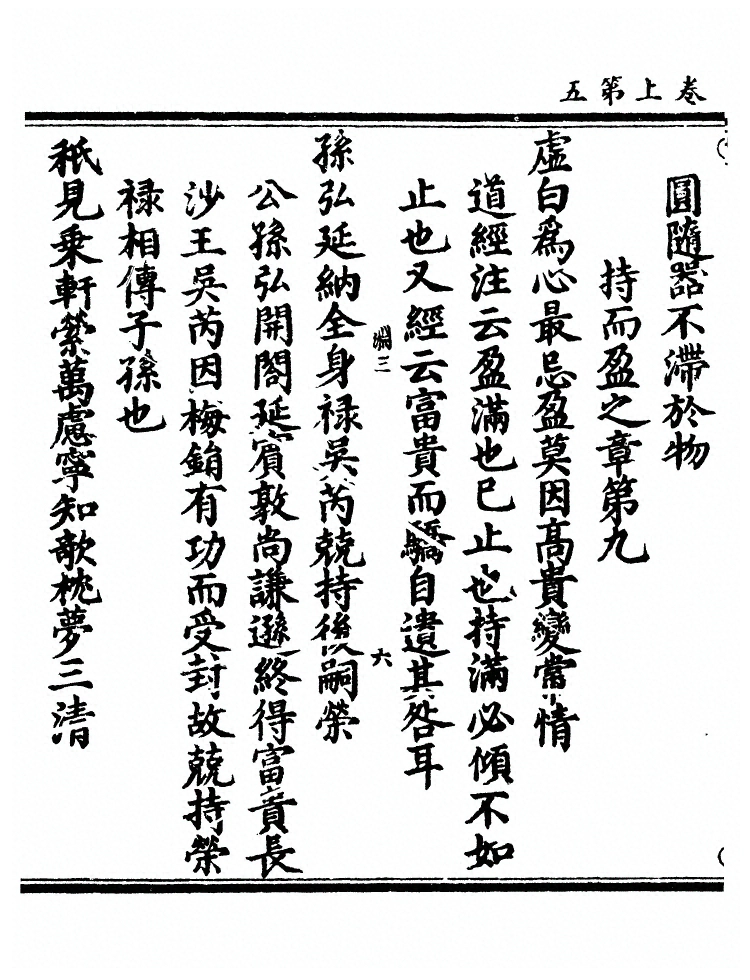 卷上第五
圓隨器不滯於物
持而盈之章第九
虛白爲心最忌盈莫因高貴變常情
道經注云盈滿也巳止也持滿必傾不如
止也又經云富貴而驕自遺其咎耳
淵三
六
孫弘延納全身祿吳芮兢持後嗣榮
公孫弘開閤延賓敦尚謙遜終得富貴長
沙王吳芮因梅鋗有功而受封故兢持榮
祿相傳子孫也
秖見乗軒縈萬慮寧知欹枕夢三清